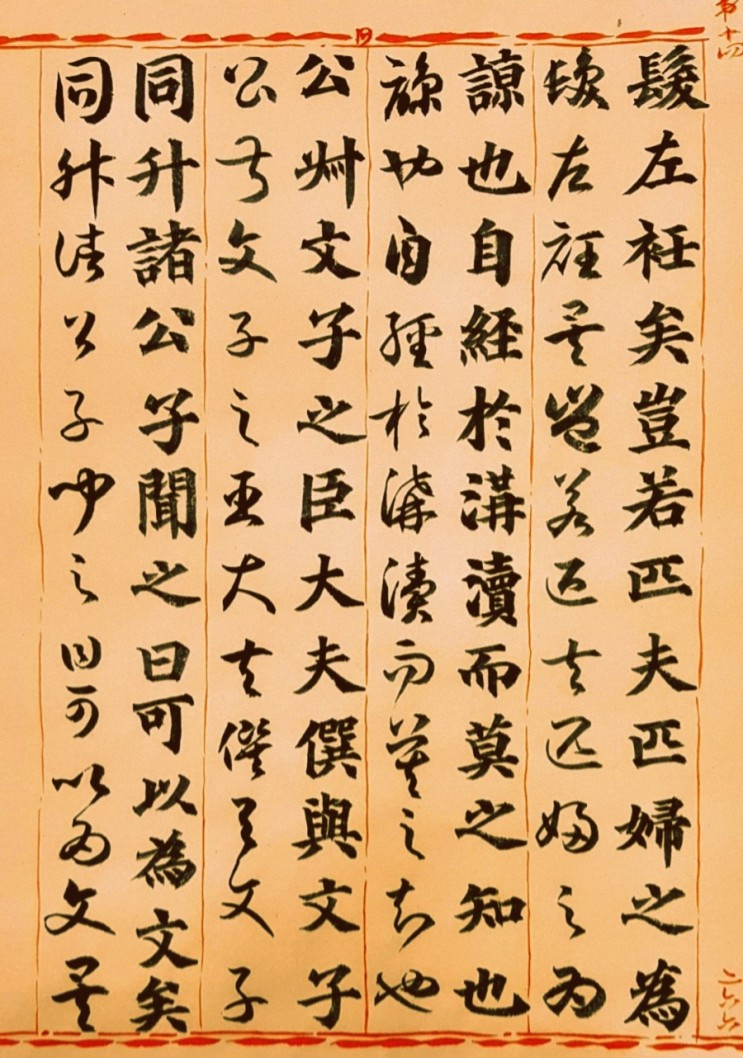 第十四
髮左衽矣豈若匹夫匹婦之為
髮左衽矣豈若匹夫匹婦之為
諒也自経於溝瀆而莫之知也
諒也自經於溝瀆而莫之知也
公叔文子之臣大夫僎與文子
公叔文子之臣大夫僎與文子
同升諸公子聞之曰可以為文矣
同升諸公子聞之曰可以為文矣
二六六